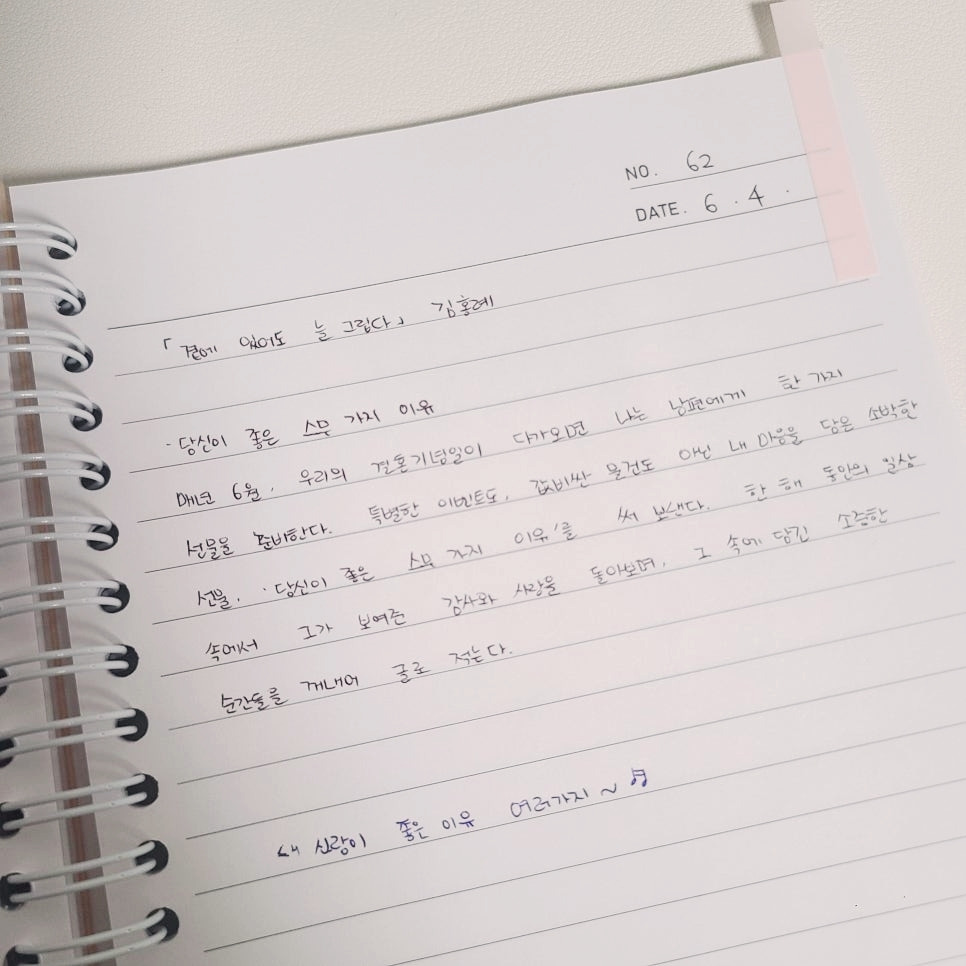 NO. 62
DATE. 6 . 4 .
「곁에 있어도 늘 그립다」 김홍례
· 당신이 좋은 스무 가지 이유
매년 6월, 우리의 결혼기념일이 다가오면 나는 남편에게 한 가지
선물을 준비한다. 특별한 이벤트도, 값비싼 물건도 아닌 내 마음을 담은 소박한
선물, '당신이 좋은 스무 가지 이유'를 써 보낸다. 한 해 동안의 일상
속에서 그가 보여준 감사와 사랑을 돌아보며, 그 속에 담긴 소중한
순간들을 꺼내어 글로 적는다.
새 신랑이 좋은 이유 여러가지 ~ ♬